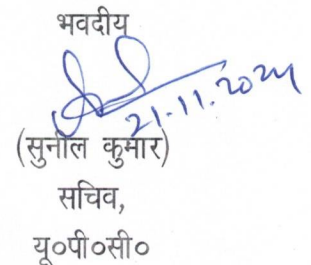 भवदीय
21.11.2024
(सुनील कुमार)
सचिव,
यू०पी०सी०